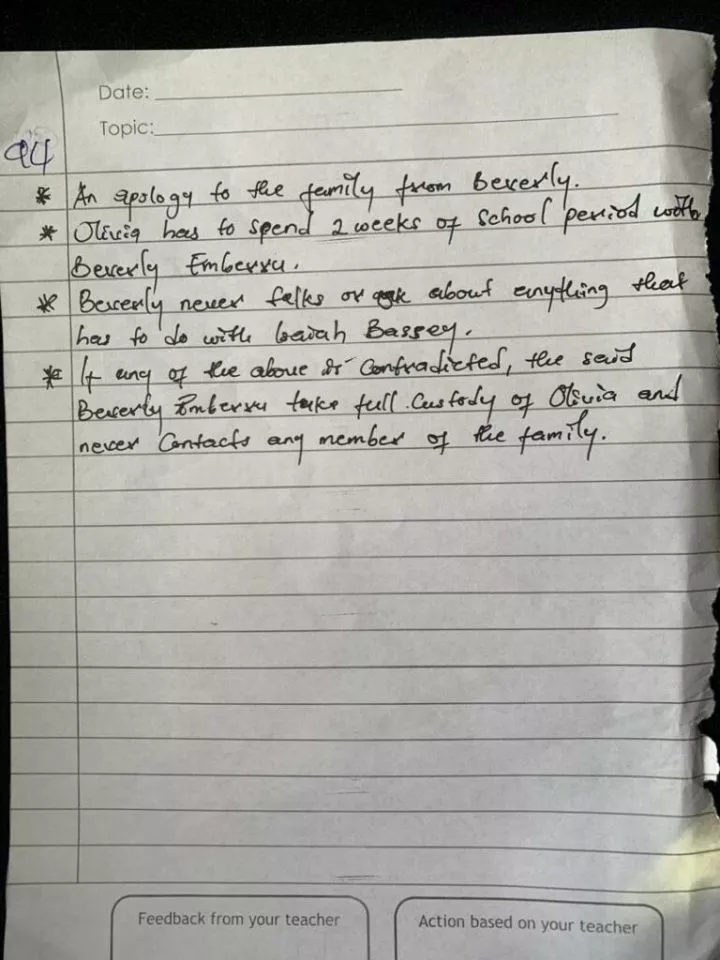 Date:
Topic:
94
* An apology to the family from Beverly.
* Olivia has to spend 2 weeks of school period with
Beverly Emberru.
* Beverly never talks or ask about anything that
has to do with Isaiah Bassey.
* If any of the above is contradicted, the said
Beverly Emberru take full custody of Olivia and
never contacts any member of the family.
Feedback from your teacher
Action based on your teacher